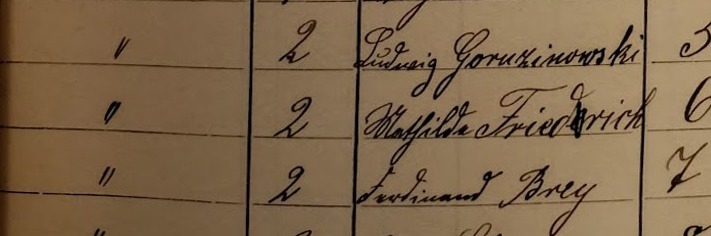 " 2 Ludwig Goruzinowski 5
" 2 Mathilde Friederich 6
" 2 Ferdinand Brey 7